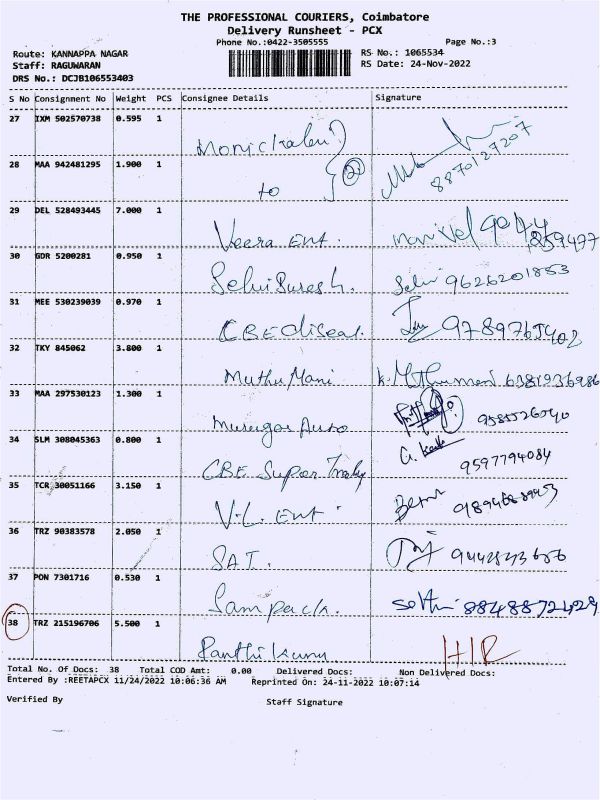 THE PROFESSIONAL COURIERS, Coimbatore
Delivery Runsheet - PCX
Phone No.:0422-3505555 Page No.:3
Route: KANNAPPA NAGAR RS No.: 1065534
Staff: RAGUWARAN RS Date: 24-Nov-2022
DRS No.: DCJB106553403
S No Consignment No Weight PCS Consignee Details Signature
27 IXM 502570738 0.595 1
28 MAA 942481295 1.900 1 to 8870127207
29 DEL 528493445 7.000 1 Veera Ent.
30 GDR 5200281 0.950 1 Selvi Suresh. Selvi 9626201853
31 MEE 530239039 0.970 1 CBE
32 TKY 845062 3.800 1 Muthu Mani 6381936986
33 MAA 297530123 1.300 1 Murugan Auto
34 SLM 308045363 0.800 1 CBE Super 9597794084
35 TCR 30051166 3.150 1 V.L. Ent
36 TRZ 90383578 2.050 1 SAT.
37 PON 7301716 0.530 1 Sampack.
38 TRZ 215196706 5.500 1
Total No. Of Docs: 38 Total COD Amt: 0.00 Delivered Docs: Non Delivered Docs:
Entered By :REETAPCX 11/24/2022 10:06:36 AM Reprinted On: 24-11-2022 10:07:14
Verified By Staff Signature